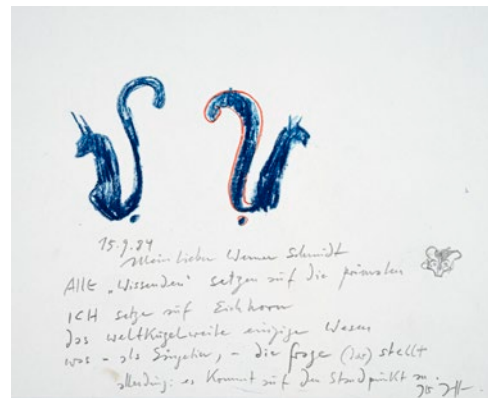 15.9.84
Mein lieber Werner Schmidt
Alle „Wissenden“ setzen auf die primaten
ICH setze auf Eichhorn
das weltkugelweite einzige Wesen
was – als Säugetier, – die frage (dar) stellt
allerdings: es kommt auf den Standpunkt an.